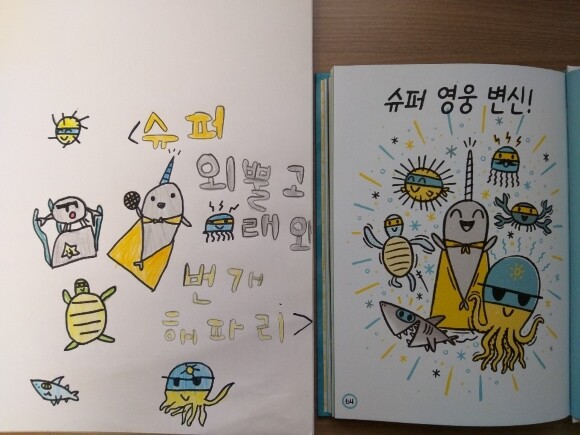 <슈퍼
외뿔고
래와
번개
해파리>
슈퍼 영웅 변신!
64